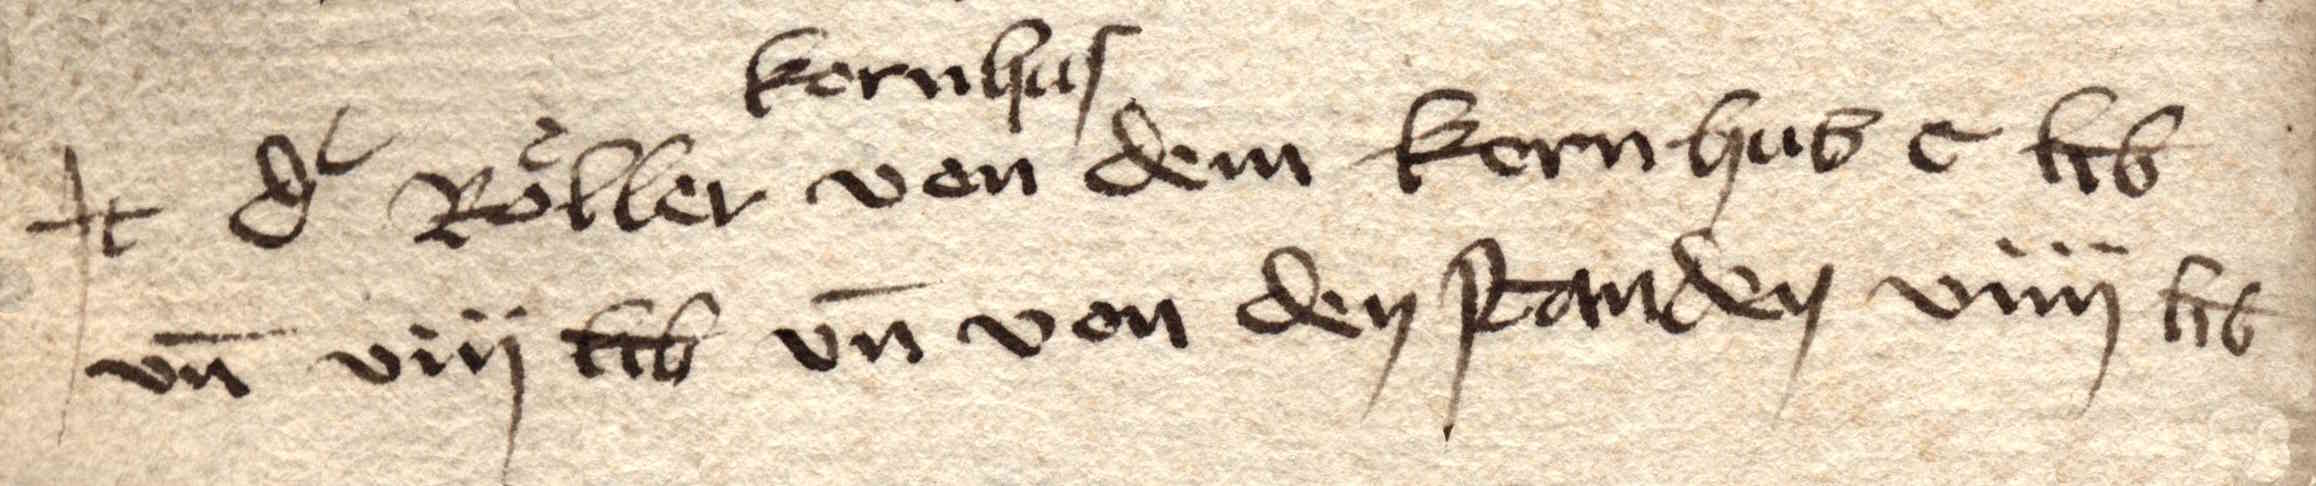 kornhus
It d᷑ Roͤller von dem kornhus c lib
vn̄ viij lib vn̄ von den standen viiij lib